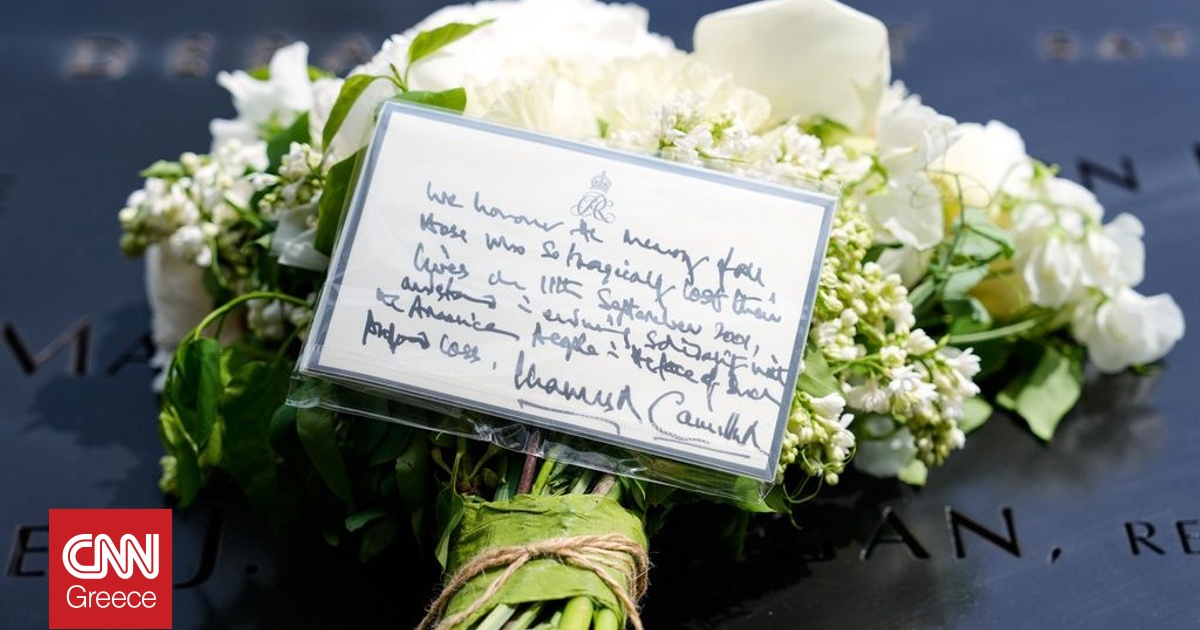 We honour the memory of all
those who so tragically lost their
lives on 11th September 2001,
and stand in enduring solidarity with
the American People in the face of such
profound loss.
Charles R Camilla R
MA
E J.
GAN, RE
CNN
Greece